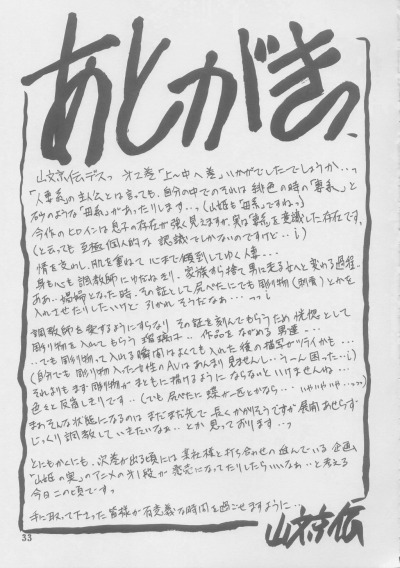 あとがきっ
山文京伝デスっ 第2巻「上〜中へ巻」いかがでしたでしょうか…っ
「人妻系」の主人公とは言っても、自分の中でのそれは 桃色の時の「妻系」と
のような「母系」があったりします…っ(山姫も「母系」ですねっ)
今作のヒロインは息子の存在が強く見えますが、実は「妻系」を意識した存在です。
(と云っても 至極個人的な 認識でしかないのですけど…i)
情を交わし、肌を重ねて 心まで傾倒してゆく人妻…
身も心も調教師にゆだねきり、家族すら捨て 男に走る女へと変わる過程…
ああ…娼婦となった時、その証として尻ぺたにでも彫り物(刺青)とかを
入れてせたりしたいけど 引かれそうだなぁ… っっi
調教師を愛するようにすらなり その証を刻んでもらうため 恍惚として
彫り物を入れてもらう 瑠璃子… 作品をながめる男達…
…でも彫り物って入れる瞬間はよくても 入れた後の描写がツライかも…
(自分でも 彫り物入った女性のAVはあんまり見ませんし…うーん困った…i)
それよりもまず彫り物が まともに描けるように ならないといけませんね…
色々と反省しきりです…(でも尻ぺたに 蝶が一匹とかなら… いかいかi…っっ)
まぁそんな状態になるのは まだまだ先で 長くかかりそうですが 展開あせらず
じっくり調教していきたいなぁ… とか思っております…っ
ともにもかくにも、次巻が出る頃には 某社様と打ち合せの進んでいる 企画
「山姫の実」のアニメの第1段が 発売になってたりしたらいいなぁ…と考える
今日この頃です。
手に取って下さった皆様が有意義な時間を過ごせますように…
山文京伝
33